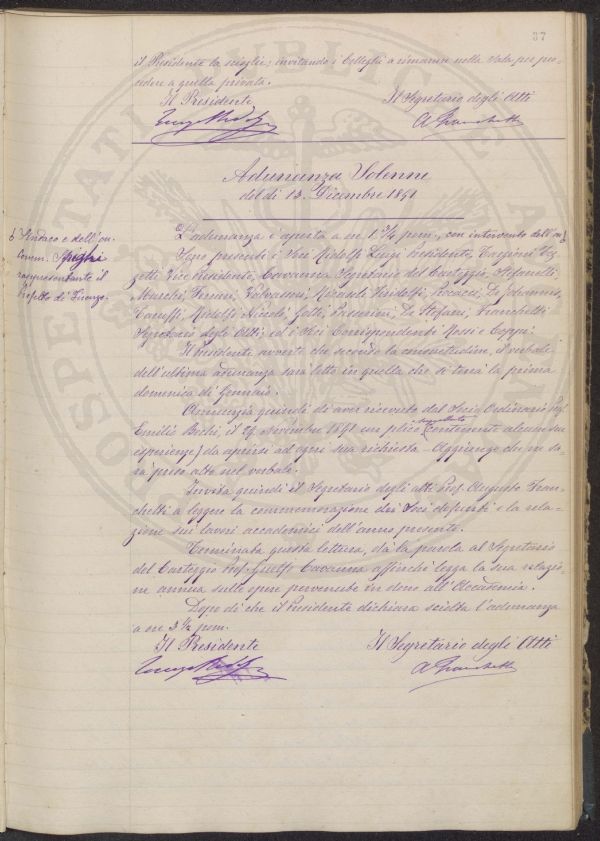 37
il Presidente la scioglie; invitando i Colleghi a rimanere nella Sala per pro-
cedere a quella privata.
Il Presidente Il Segretario degli Atti
A Franchetti
Adunanza Solenne
del dì 13. Dicembre 1891
L'adunanza è aperta a ore 1 3/4 pom., con intervento dell'on.
Sindaco e dell'on.
Comm.
rappresentante il
Prefetto di Firenze.
Sono presenti i Soci Ridolfi Luigi Presidente,
Vice Presidente, Cavanna Segretario del Carteggio, Stefanelli
Marchi, Ferrari, Valvassori, Ricasoli Firidolfi, De Johannis,
Caruffi, Ridolfi Niccolò, Gotti, De Stefani, Franchetti
Segretario degli Atti; ed i Soci Corrispondenti Rossi e
Il Presidente avverte che secondo la consuetudine, il verbale
dell'ultima adunanza sarà letto in quella che si terrà la prima
domenica di Gennaio.
Annunzia quindi di aver ricevuto dal Socio Ordinario Prof.
Emilio Bechi, il 29 Novembre 1891 un plico suggellato contenente alcune sue
esperienze, da aprirsi ad ogni sua richiesta. Aggiunge che ne sa-
rà preso atto nel verbale.
Invita quindi il Segretario degli atti Prof. Augusto Fran-
chetti a leggere la commemorazione dei Soci defunti e la rela-
zione sui lavori accademici dell'anno presente.
Terminata questa lettura, dà la parola al Segretario
del Carteggio Prof. Guelfo Cavanna affinchè legga la sua relazio-
ne annua sulle opere pervenute in dono all'Accademia.
Dopo di che il Presidente dichiara sciolta l'adunanza
a ore 3 1/2 pom.
Il Presidente Il Segretario degli Atti
A Franchetti